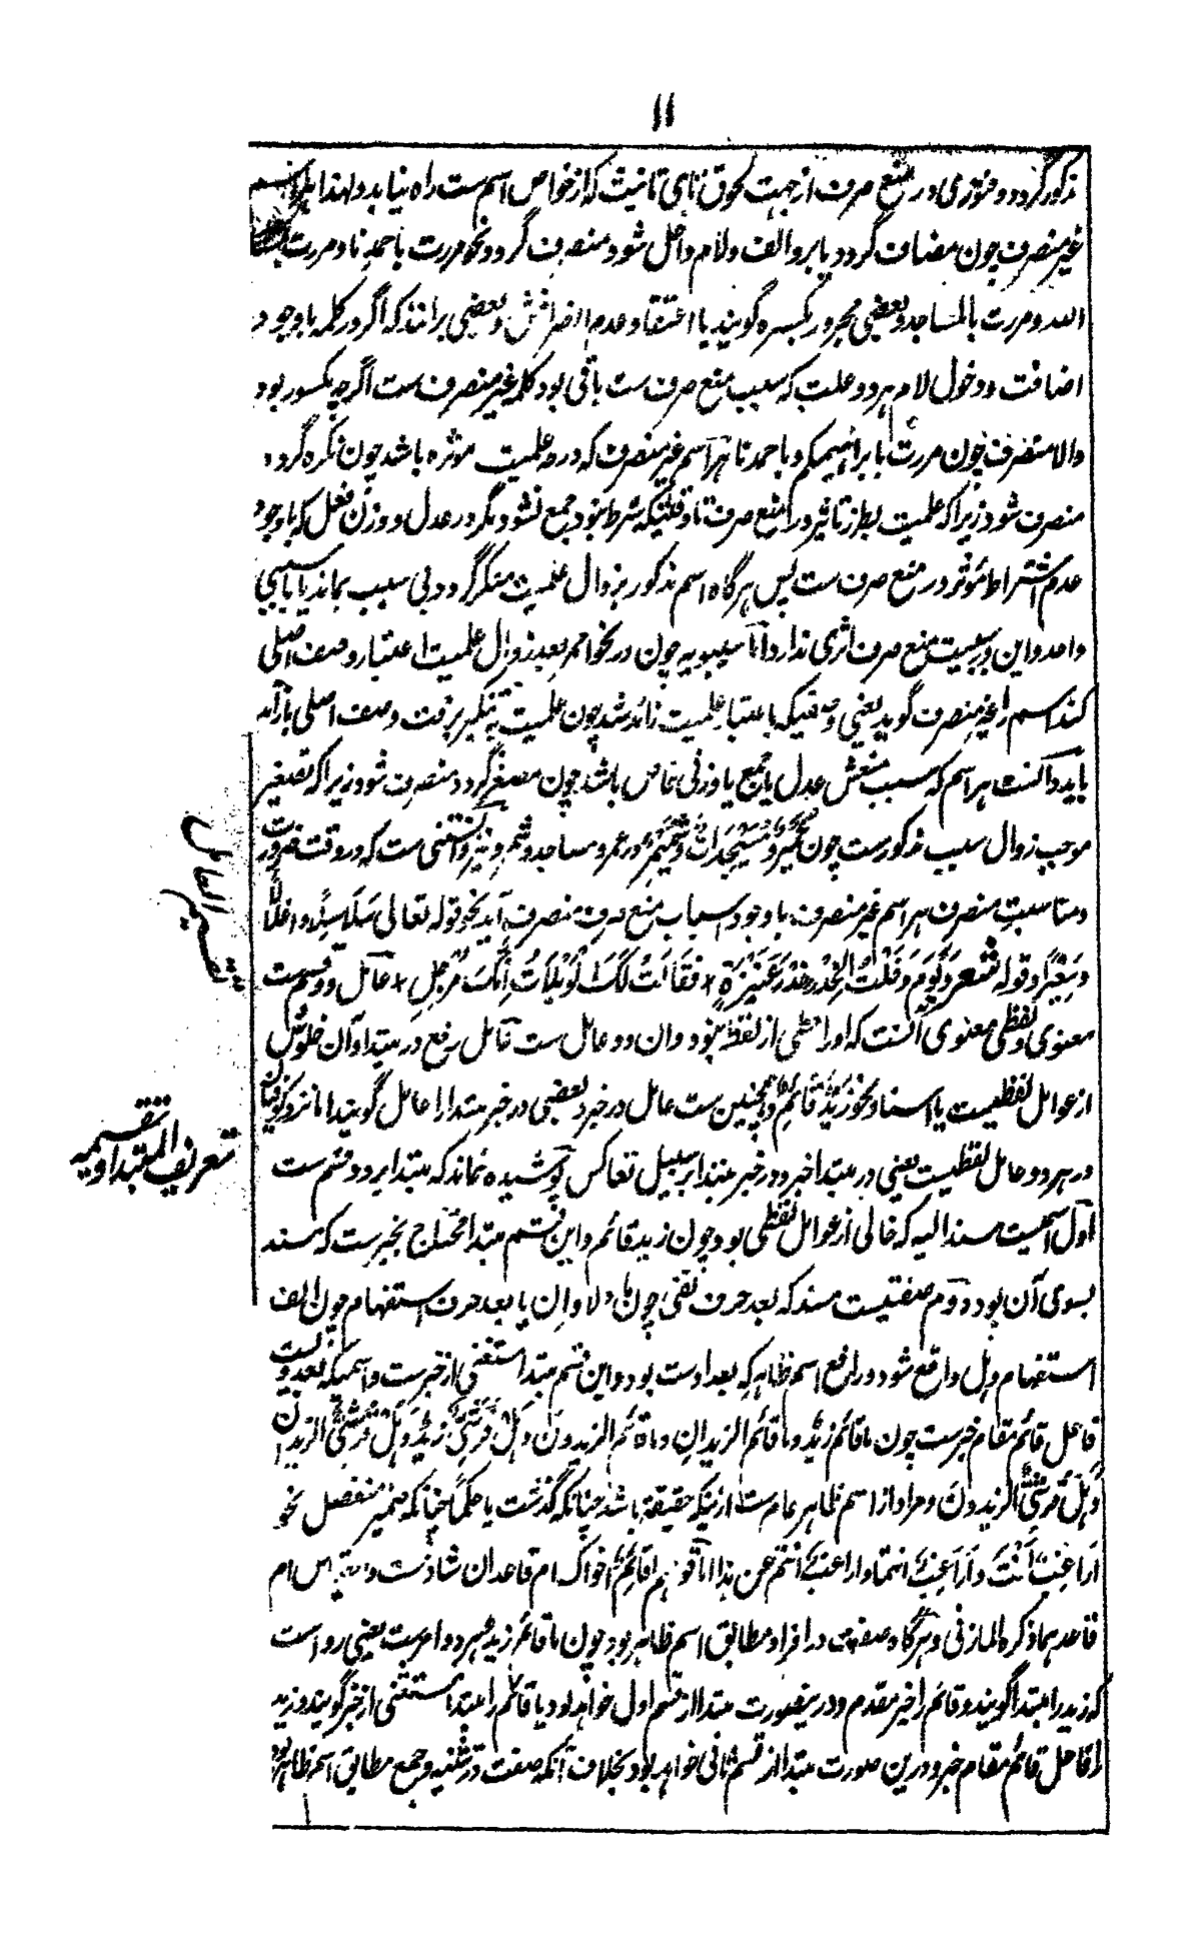 ۱۱
مذکور گردد و فتوری در منع صرف از جهت لحوق تای تانیث که از خواص اسم ست راه نیابد ولهذا
غیر منصرف چون مضاف گردد یا برو الف ولام داخل شود منصرف گردد نحو مررت باحمدنا ومررت
الله ومررت بالمساجد وبعضی مجرور بکسره گویند با اعتقاد عدم انصرافش وبعضی برانند که اگر در کلمه باوجود
اضافت ودخول لام هر دو علت که سبب منع صرف ست باقی بود کلمه غیر منصرف ست اگرچه مکسور بود
والا منصرف چون مررت بابراهیمکم وباحمدنا هر اسم غیر منصرف که درو علمیت موثره باشد چون نکره گردد
منصرف شود زیراکه علمیت بطرز تاثیر در منع صرف تا وقتیکه شرط نبود جمع نشود مگر در عدل ووزن فعل که باوجود
عدم اشتراط موثر در منع صرف ست پس هرگاه اسم مذکور بزوال علمیت منکر گردد بی سبب بماند یا باسببی
واحد واین در سببیت منع صرف اثری ندارد اما سیبویه چون در نحو احمر بعد زوال علمیت اعتبار وصف اصلی
کند اسم را غیر منصرف گوید یعنی وصفیکه باعتبار علمیت زائد شد چون علمیت به تنکیر برفت وصف اصلی باز آمد
باید دانست هر اسم که سبب منعش عدل یا جمع یا وزنی خاص باشد چون مصغر گردد منصرف شود زیراکه تصغیر
موجب زوال سبب مذکورست چون عمیر ومسیجدات وشمیر در عمر ومساجد وشمر ونیز دانستنی ست که در وقت ضرورت
ومناسبت منصرف هر اسم غیر منصرف باوجود اسباب منع صرف منصرف آید نحو قوله تعالی سلاسلا واغلالا
وسعیرا وقوله شعر ویوم دخلت الخدر خدر عنیزة * فقالت لک الویلات انک مرجلی * عامل دو قسم ست
معنوی ولفظی معنوی آنست که اورا حظی از لفظ نبود وان دو عامل ست عامل رفع در مبتدا وآن خلوش
از عوامل لفظیست یا اسناد نحو زید قائم وهمچنین ست عامل در خبر وبعضی در خبر مبتدا را عامل گویند اما نزد کوفیان
در هر دو عامل لفظیست یعنی در مبتدا خبر ودر خبر مبتدا بر سبیل تعاکس پوشیده نماند که مبتدا بر دو قسم ست
اول اسمیست مسند الیه که خالی از عوامل لفظی بود چون زید قائم واین قسم مبتدا محتاج بخبرست که مسند
بسوی آن بود دوم صفتیست مسند که بعد حرف نفی چون ما ولا وان یا بعد حرف استفهام چون الف
استفهام وهل واقع شود ورافع اسم ظاهر که بعد اوست بود واین قسم مبتدا مستغنی از خبرست واسمیکه بعد ویست
فاعل قائم مقام خبرست چون ما قائم زید وما قائم الزیدان وما قائم الزیدون وهل قرشی زید وهل قرشی الزیدان
وهل قرشی الزیدون ومراد از اسم ظاهر عام ست ازینکه حقیقة باشد چنانکه گذشت یا حکما چنانکه ضمیر منفصل نحو
اراغب انت واراغب انتما واراغب انتم عن هذا اما قولهم اقائم اخواک ام قاعدان شاذست وقیاس ام
قاعد هما ذکره المازنی وهرگاه صفت در افراد مطابق اسم ظاهر بود چون ما قائم زید هر دو امرست یعنی رواست
که زید را مبتدا گویند وقائم را خبر مقدم ودرینصورت مبتدا از قسم اول خواهد بود یا قائم را مبتدا مستغنی از خبر گویند وزید
را فاعل قائم مقام خبر ودرین صورت مبتدا از قسم ثانی خواهد بود بخلاف آنکه صفت در تثنیه وجمع مطابق اسم ظاهر بود
تقسیم العامل
تعریف المبتدا وتقسیمه